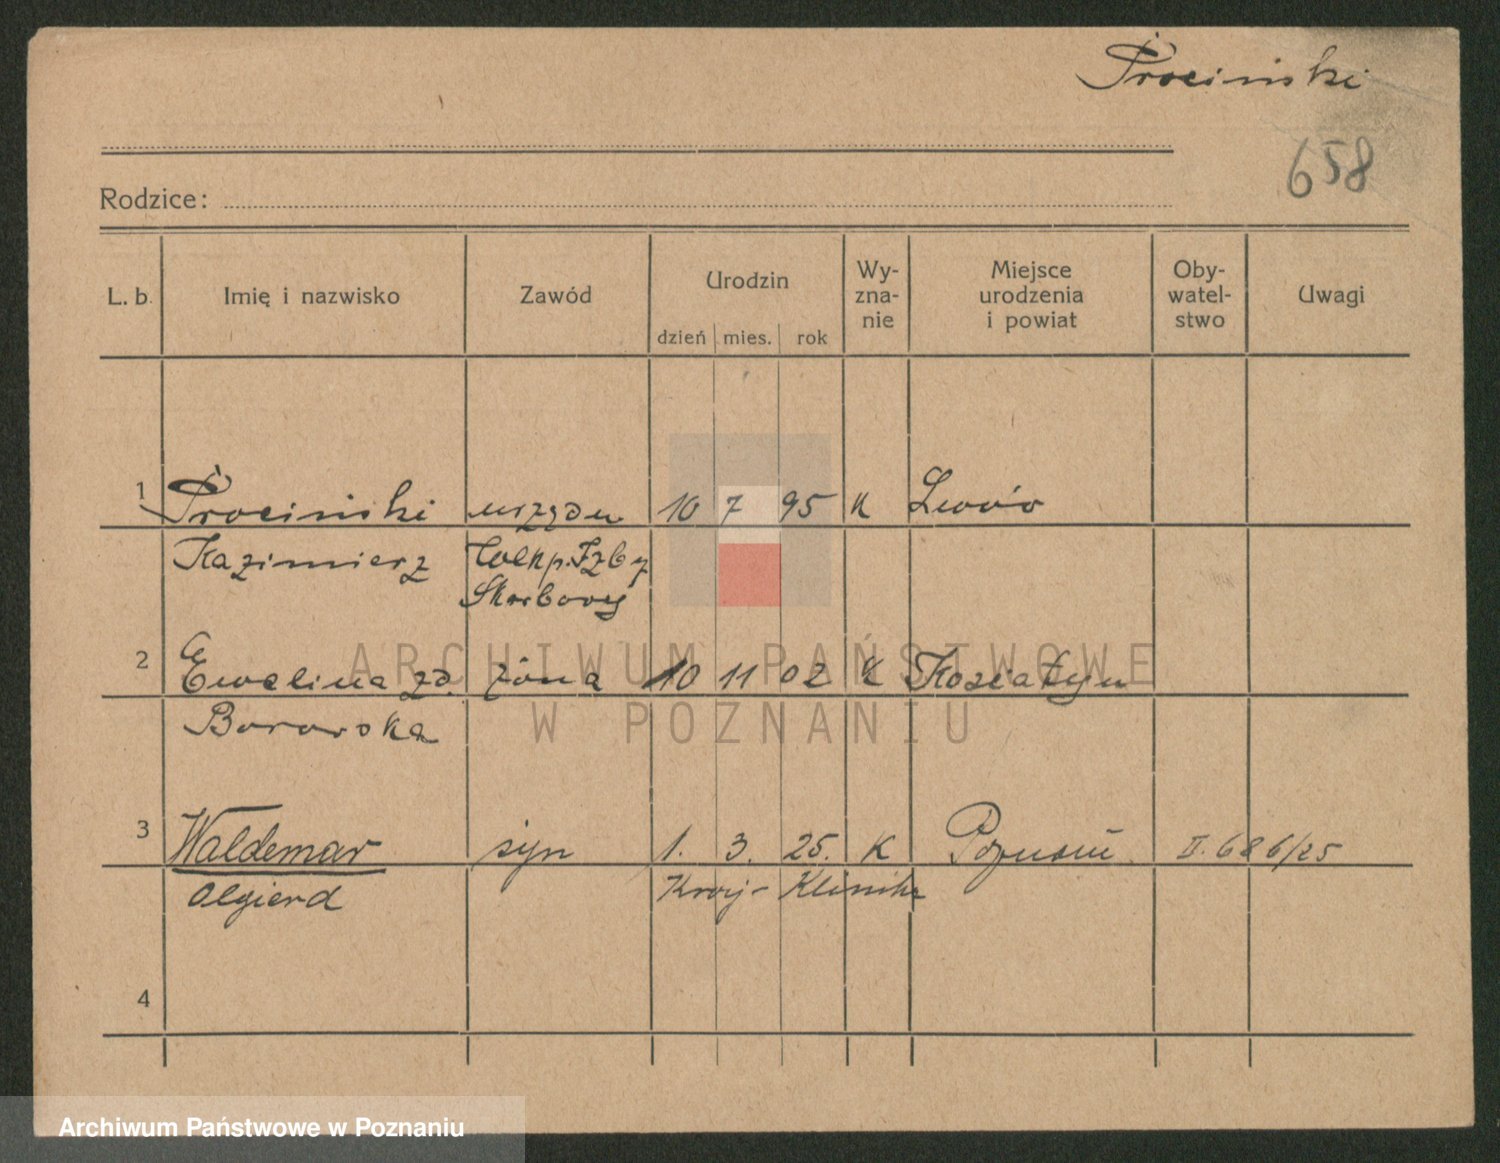 Prociński
658
Rodzice:
L. b. Imię i nazwisko Zawód Urodzin dzień mies. rok Wy-zna-nie Miejsce urodzenia i powiat Oby-watel-stwo Uwagi
1 Prociński urzędn 10 7 95 K Lwów
Kazimierz Wlkp. Izby
Skarbowej
2 Ewelina zd. żona 10 11 02 K Koziatyn
Borowska
3 Waldemar syn 1. 3. 25. K Poznań II. 686/25
Olgierd Kraj- Klinika
4
ARCHIWUM PAŃSTWOWE
W POZNANIU
Archiwum Państwowe w Poznaniu